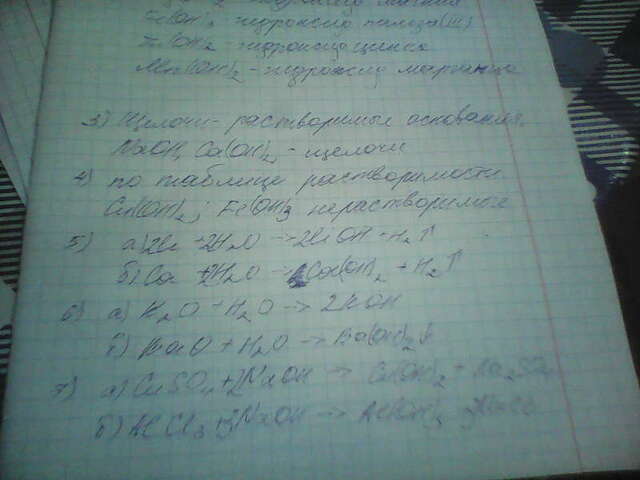 Fe(OH)3 гидроксид железа (III)
Zn(OH)2 гидроксид цинка
Mn(OH)2 - гидроксид марганца
3) Щелочи - растворимые основания.
NaOH, Ca(OH)2 - щелочи
4) по таблице растворимости
Cu(OH)2; Fe(OH)3 нерастворимые
5) а) 2Li + 2H2O → 2LiOH + H2↑
б) Ca + 2H2O → Ca(OH)2 + H2↑
6) а) K2O + H2O → 2KOH
б) BaO + H2O → Ba(OH)2
7) а) CuSO4 + 2NaOH → Cu(OH)2 + Na2SO4
б) AlCl3 + 3NaOH → Al(OH)3 3NaCl